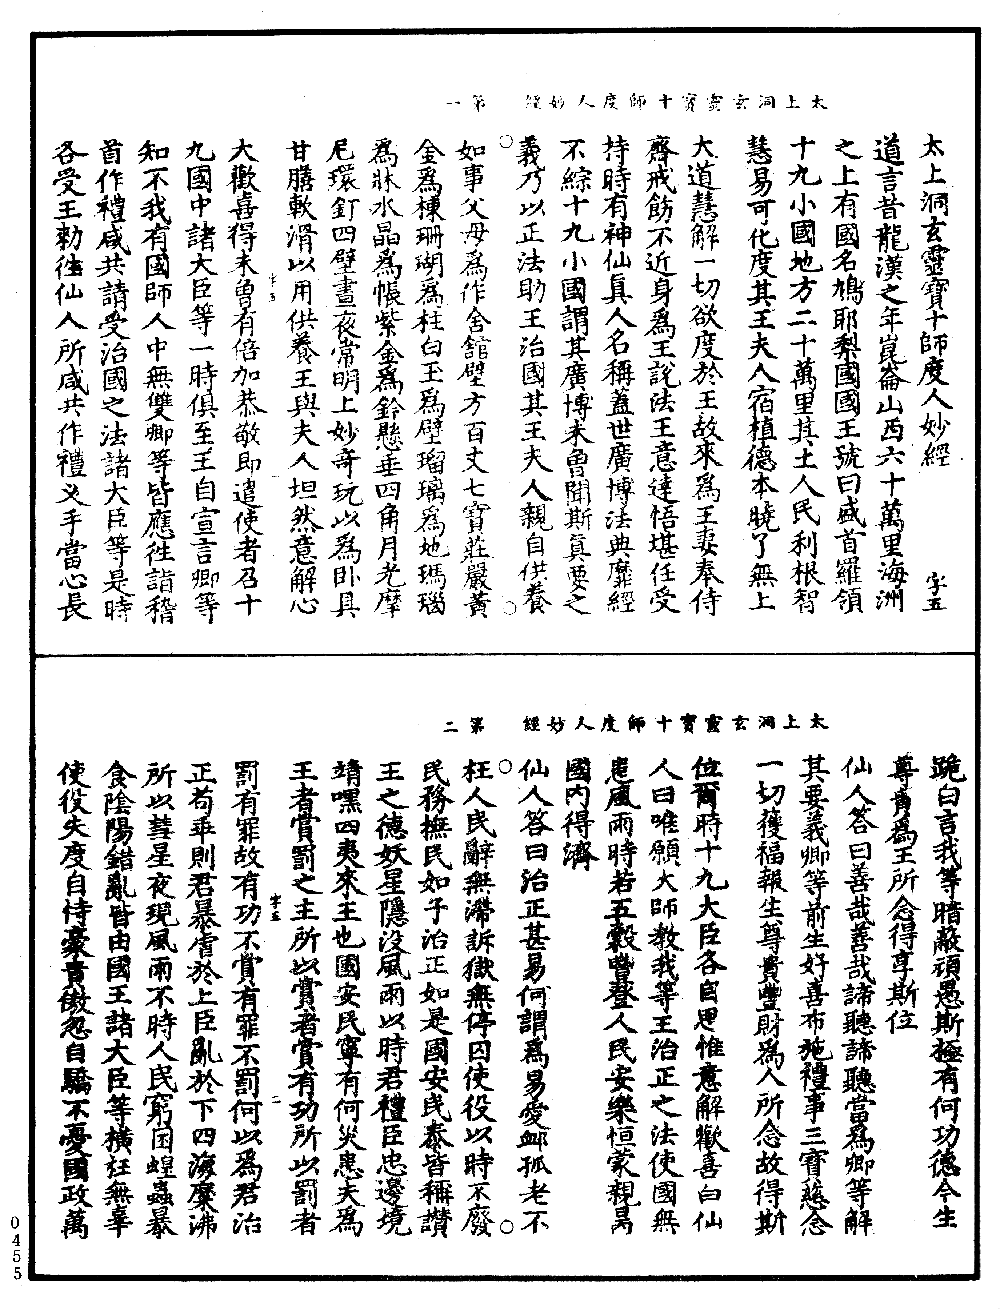 太上洞玄靈寶十師度人妙經 第一
太上洞玄靈寶十師度人妙經 字五
道言昔龍漢之年崑崙山西六十萬里海洲
之上有國名鳩耶梨國國王號曰盛首羅領
十九小國地方二十萬里其土人民利根智
慧易可化度其王夫人宿植德本曉了無上
大道慧解一切欲度於王故來為王妻奉侍
齋戒飭不近身為王說法王意達悟堪任受
持時有神仙真人名稱蓋世廣博法典靡經
不綜十九小國謂其廣博未曾聞斯真要之
義乃以正法助王治國其王夫人親自供養
如事父母為作舍館壁方百丈七寶莊嚴黃
金為棟珊瑚為柱白玉為壁瑠璃為地瑪瑙
為牀水晶為帳紫金為鈴懸垂四角月光摩
尼環釘四壁晝夜常明上妙奇玩以為卧具
甘膳軟滑以用供養王與夫人坦然意解心
字五
大歡喜得未曾有倍加恭敬即遣使者召十
九國中諸大臣等一時俱至王自宣言卿等
知不我有國師人中無雙卿等皆應往詣稽
首作禮咸共請受治國之法諸大臣等是時
各受王勅往仙人所咸共作禮叉手當心長
太上洞玄靈寶十師度人妙經 第二
跪白言我等暗蔽頑愚斯極有何功德今生
尊貴為王所念得享斯位
仙人答曰善哉善哉諦聽諦聽當為卿等解
其要義卿等前生好喜布施禮事三寶慈念
一切獲福報生尊貴豐財為人所念故得斯
位爾時十九大臣各自思惟意解歡喜白仙
人曰唯願大師教我等王治正之法使國無
患風雨時若五穀豐登人民安樂恒蒙親曷
國內得濟
仙人答曰治正甚易何謂為易愛卹孤老不
枉人民辭無滯訴獄無停囚使役以時不廢
民務撫民如子治正如是國安民泰皆稱讚
王之德妖星隱沒風雨以時君禮臣忠邊境
靖嘿四夷來王也國安民寧有何災患夫為
王者賞罰之主所以賞者賞有功所以罰者
字五 二
罰有罪故有功不賞有罪不罰何以為君治
正苟乖則君暴虐於上臣亂於下四海麋沸
所以彗星夜現風雨不時人民窮困蝗蟲暴
食陰陽錯亂皆由國王諸大臣等橫枉無辜
使役失度自恃豪貴傲忽自驕不憂國政萬
0455